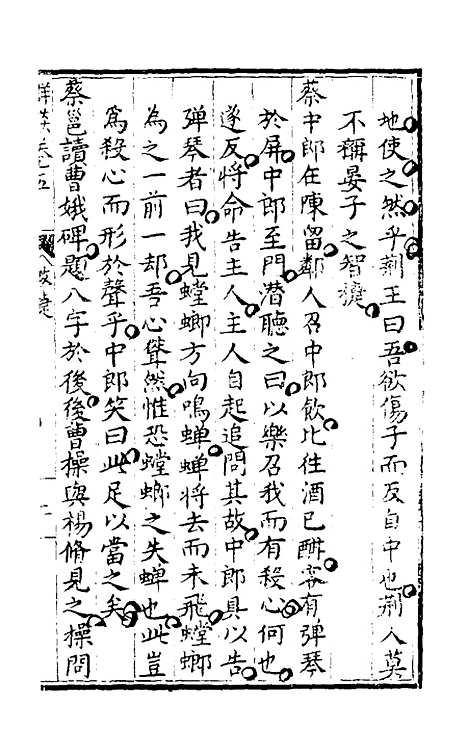 地使之然乎荆王曰吾欲傷子而反自中也荆人莫
不稱晏子之智獪
蔡中郎在陳留鄰人召中郎飲比往酒已酣客有弹琴
於屏中郎至門潜聽之曰以樂召我而有殺心何也
遂反將命告主人主人自起追問其故中郎具以告
弹琴者曰我見螳螂方向鳴蝉蝉將去而未飛螳螂
為之一前一却吾心聳然惟恐螳螂之失蝉也此豈
為殺心而形於聲乎中郎笑曰此足以當之矣
蔡邕讀曹娥碑題八字於後後曹操與楊脩見之操問